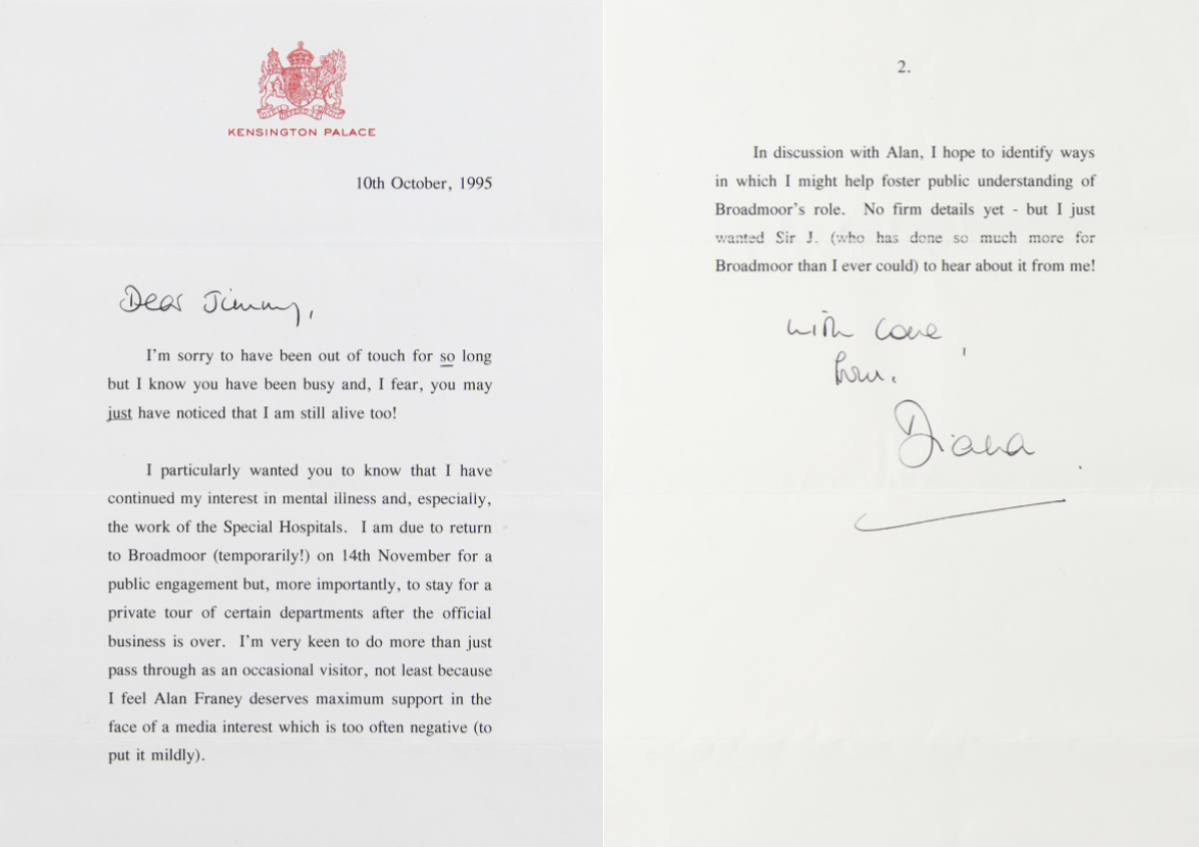 KENSINGTON PALACE
10th October, 1995
Dear Jimmy,
I'm sorry to have been out of touch for so long
but I know you have been busy and, I fear, you may
just have noticed that I am still alive too!
I particularly wanted you to know that I have
continued my interest in mental illness and, especially,
the work of the Special Hospitals. I am due to return
to Broadmoor (temporarily!) on 14th November for a
public engagement but, more importantly, to stay for a
private tour of certain departments after the official
business is over. I'm very keen to do more than just
pass through as an occasional visitor, not least because
I feel Alan Franey deserves maximum support in the
face of a media interest which is too often negative (to
put it mildly).
2.
In discussion with Alan, I hope to identify ways
in which I might help foster public understanding of
Broadmoor's role. No firm details yet - but I just
wanted Sir J. (who has done so much more for
Broadmoor than I ever could) to hear about it from me!
with love,
from.
Diana.